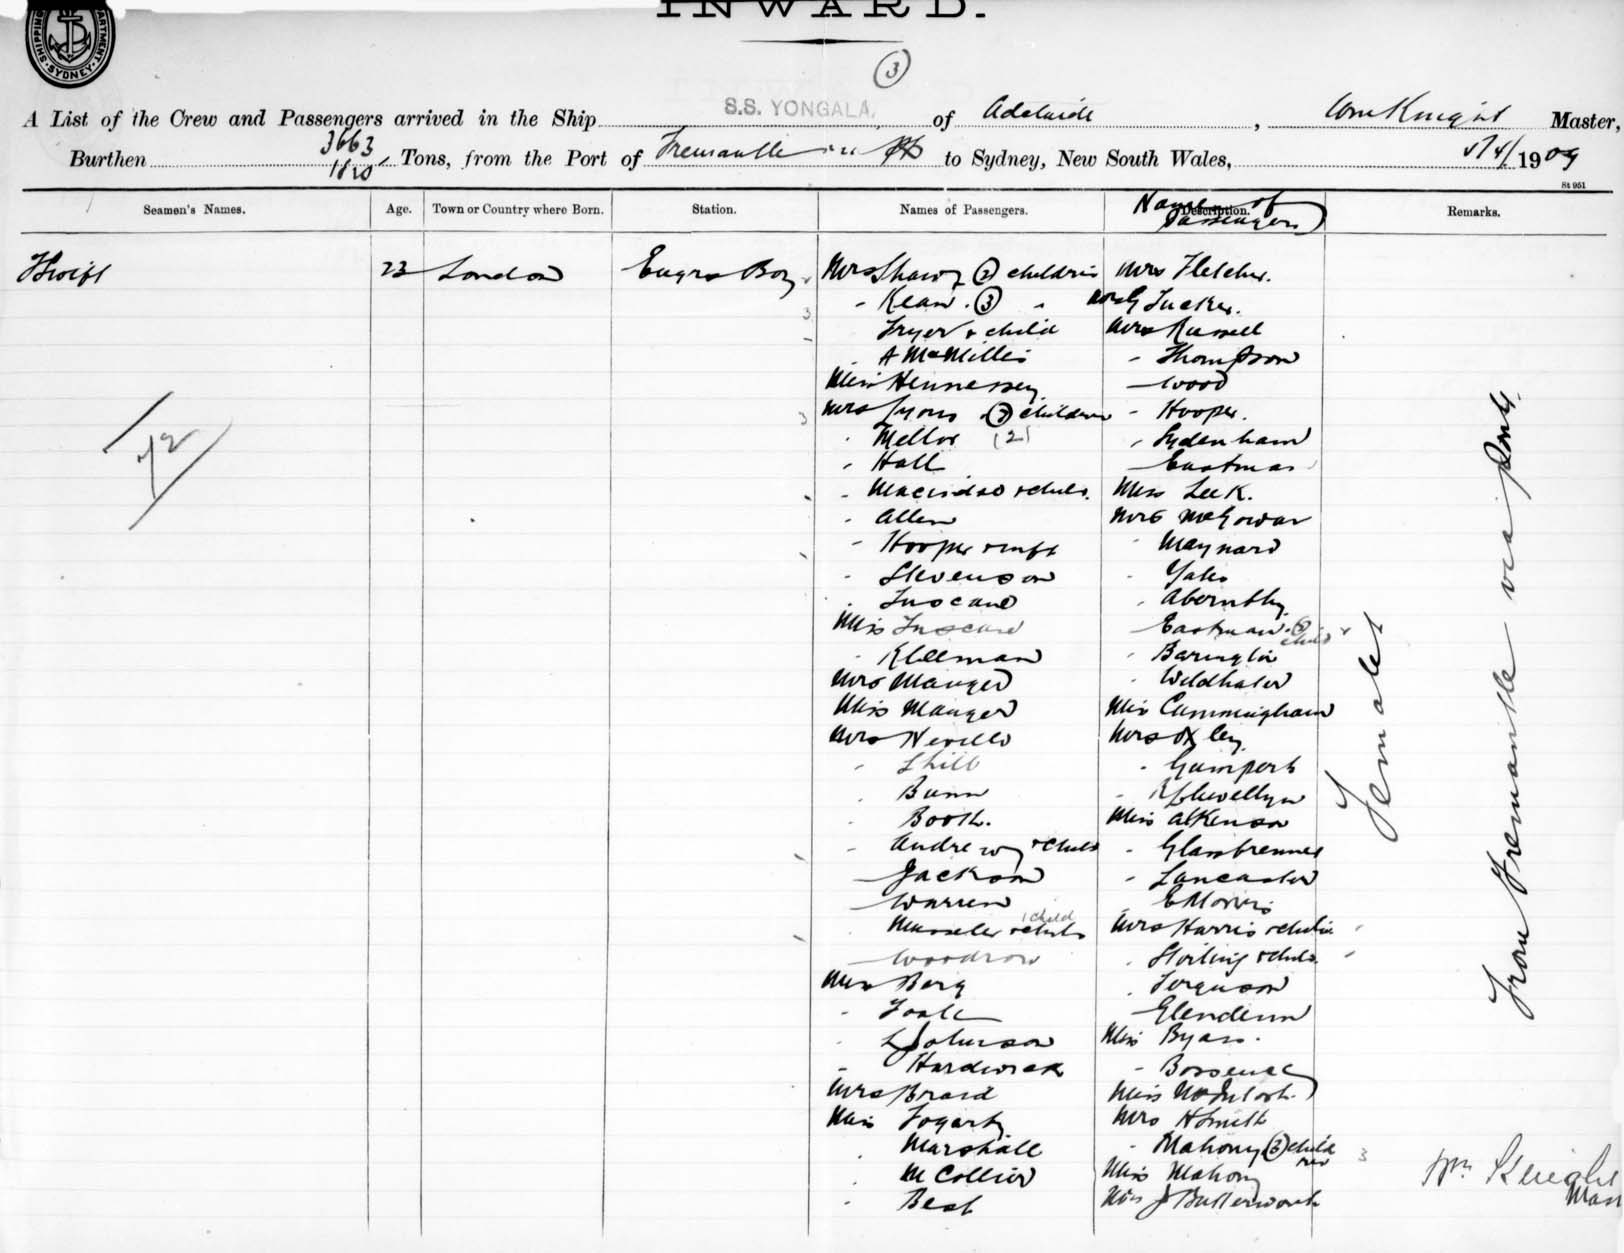 INWARD.
SHIPPING DEPARTMENT. SYDNEY.
3
A List of the Crew and Passengers arrived in the Ship S.S. YONGALA, of Adelaide, Wm Knight Master,
Burthen 3663 Tons, from the Port of Fremantle to Sydney, New South Wales, 1909
1820
St 951
Seamen's Names. Age. Town or Country where Born. Station. Names of Passengers. Description. Names of Passengers Remarks.
23 London Engrs Boy Mrs Shaw & (2) children Mrs Fletcher.
" Kean . (3) " Mrs G Tucker.
Fryer & child Mrs Russell
A McMillis - Thompson
Miss Hennessey - Wood
Mrs Lyons & (3) children - Hooper.
" Mellor (2) " Sydenham
" Hall Eastman
" & child. Miss Leek.
" Allen Mrs McGowan
" Hooper & inft " Maynard
" Stevenson " Yates
" Tuscano " Abernethy
Miss Eastman.
" Kleeman " Barington
Mrs Manger "
Miss Manger Miss Cunningham
Mrs Neville Mrs Oxley
" " Gumpert
" Bunn " Llewellyn
" Booth. Miss Atkenson
" Andrew & child " Glasbrenner
- Jackson " Lancaster
- Warren " E Morris
" & child 1 child Mrs Harris & child
- Woodrow " Stirling & child
Berg " Ferguson
" Foale Glendenn
" L Johnson Miss Byass.
" Hardwick "
Mrs Braid Miss McIntosh.
Miss Fogarty Mrs H Smith
" Marshall " Mahony (3) children 3
" M Collier Miss Mahony
" Best J Butterworth
72
Females
From Fremantle via ports.
Wm Knight
Mas